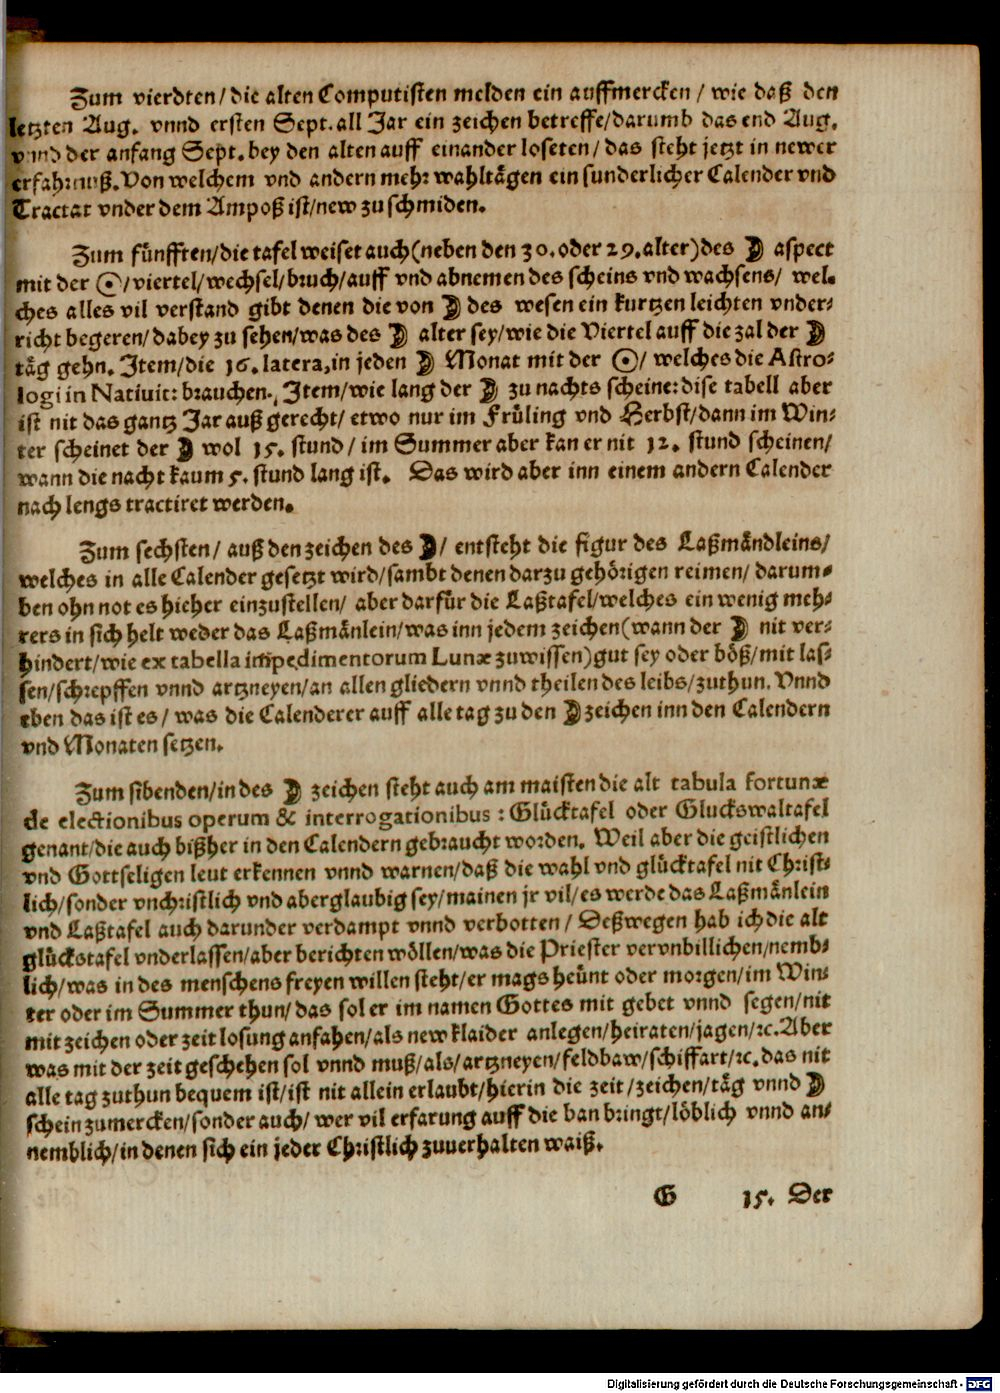 Zum vierdten/ die alten Computisten melden ein auffmercken / wie daß den
letzten Aug. vnnd ersten Sept. all Jar ein zeichen betreffe/darumb das end Aug.
vnnd der anfang Sept. bey den alten auff einander loseten/ das steht jetzt in newer
erfahrnuß. Von welchem vnd andern mehr wahltägen ein sunderlicher Calender vnd
Tractat vnder dem Ampoß ist/new zu schmiden.
Zum fünfften/die tafel weiset auch(neben den 30. oder 29. alter)des ☽ aspect
mit der ☉/viertel/wechsel/bruch/auff vnd abnemen des scheins vnd wachsens/ wel⸗
ches alles vil verstand gibt denen die von ☽ des wesen ein kurtzen leichten vnder⸗
richt begeren/ dabey zu sehen/was des ☽ alter sey/wie die Viertel auff die zal der ☽
täg gehn. Item/die 16. latera, in jeden ☽ Monat mit der ☉/ welches die Astro⸗
logi in Natiuit: brauchen. Item/wie lang der ☽ zu nachts scheine: dise tabell aber
ist nit das gantz Jar auß gerecht/ etwo nur im Früling vnd Herbst/dann im Win⸗
ter scheinet der ☽ wol 15. stund / im Summer aber kan er nit 12. stund scheinen/
wann die nacht kaum 5. stund lang ist. Das wird aber inn einem andern Calender
nach lengs tractiret werden.
Zum sechsten/ auß den zeichen des ☽/ entsteht die figur des Laßmändleins/
welches in alle Calender gesetzt wird/sambt denen darzu gehörigen reimen/ darum⸗
ben ohn not es hieher einzustellen/ aber darfür die Laßtafel/welches ein wenig meh⸗
rers in sich helt weder das Laßmänlein/was inn jedem zeichen(wann der ☽ nit ver⸗
hindert/wie ex tabella impedimentorum Lunæ zuwissen)gut sey oder böß/mit las⸗
sen/schrepffen vnnd artzneyen/an allen gliedern vnnd theilen des leibs/zuthun. Vnnd
eben das ist es / was die Calenderer auff alle tag zu den ☽ zeichen inn den Calendern
vnd Monaten setzen.
Zum sibenden/in des ☽ zeichen steht auch am maisten die alt tabula fortunæ
de electionibus operum & interrogationibus : Glücktafel oder Gluckswaltafel
genant/die auch bißher in den Calendern gebraucht worden. Weil aber die geistlichen
vnd Gottseligen leut erkennen vnnd warnen/daß die wahl vnd glücktafel nit Christ⸗
lich/sonder vnchristlich vnd aberglaubig sey/mainen jr vil/es werde das Laßmänlein
vnd Laßtafel auch darunder verdampt vnnd verbotten / Deßwegen hab ich die alt
glückstafel vnderlassen/aber berichten wöllen/was die Priester vervnbillichen/nemb⸗
lich/was in des menschens freyen willen steht/er mags heünt oder morgen/im Win⸗
ter oder im Summer thun/das sol er im namen Gottes mit gebet vnnd segen/nit
mit zeichen oder zeit losung anfahen/als new klaider anlegen/heiraten/jagen/ꝛc. Aber
was mit der zeit geschehen sol vnnd muß/als/artzneyen/feldbaw/schiffart/ꝛc. das nit
alle tag zuthun bequem ist/ist nit allein erlaubt/hierin die zeit /zeichen/täg vnnd ☽
schein zumercken/sonder auch/ wer vil erfarung auff die ban bringt/löblich vnnd an⸗
nemblich/in denen sich ein jeder Christlich zuuerhalten waiß.
G 15. Der
Digitalisierung gefördert durch die Deutsche Forschungsgemeinschaft - DFG